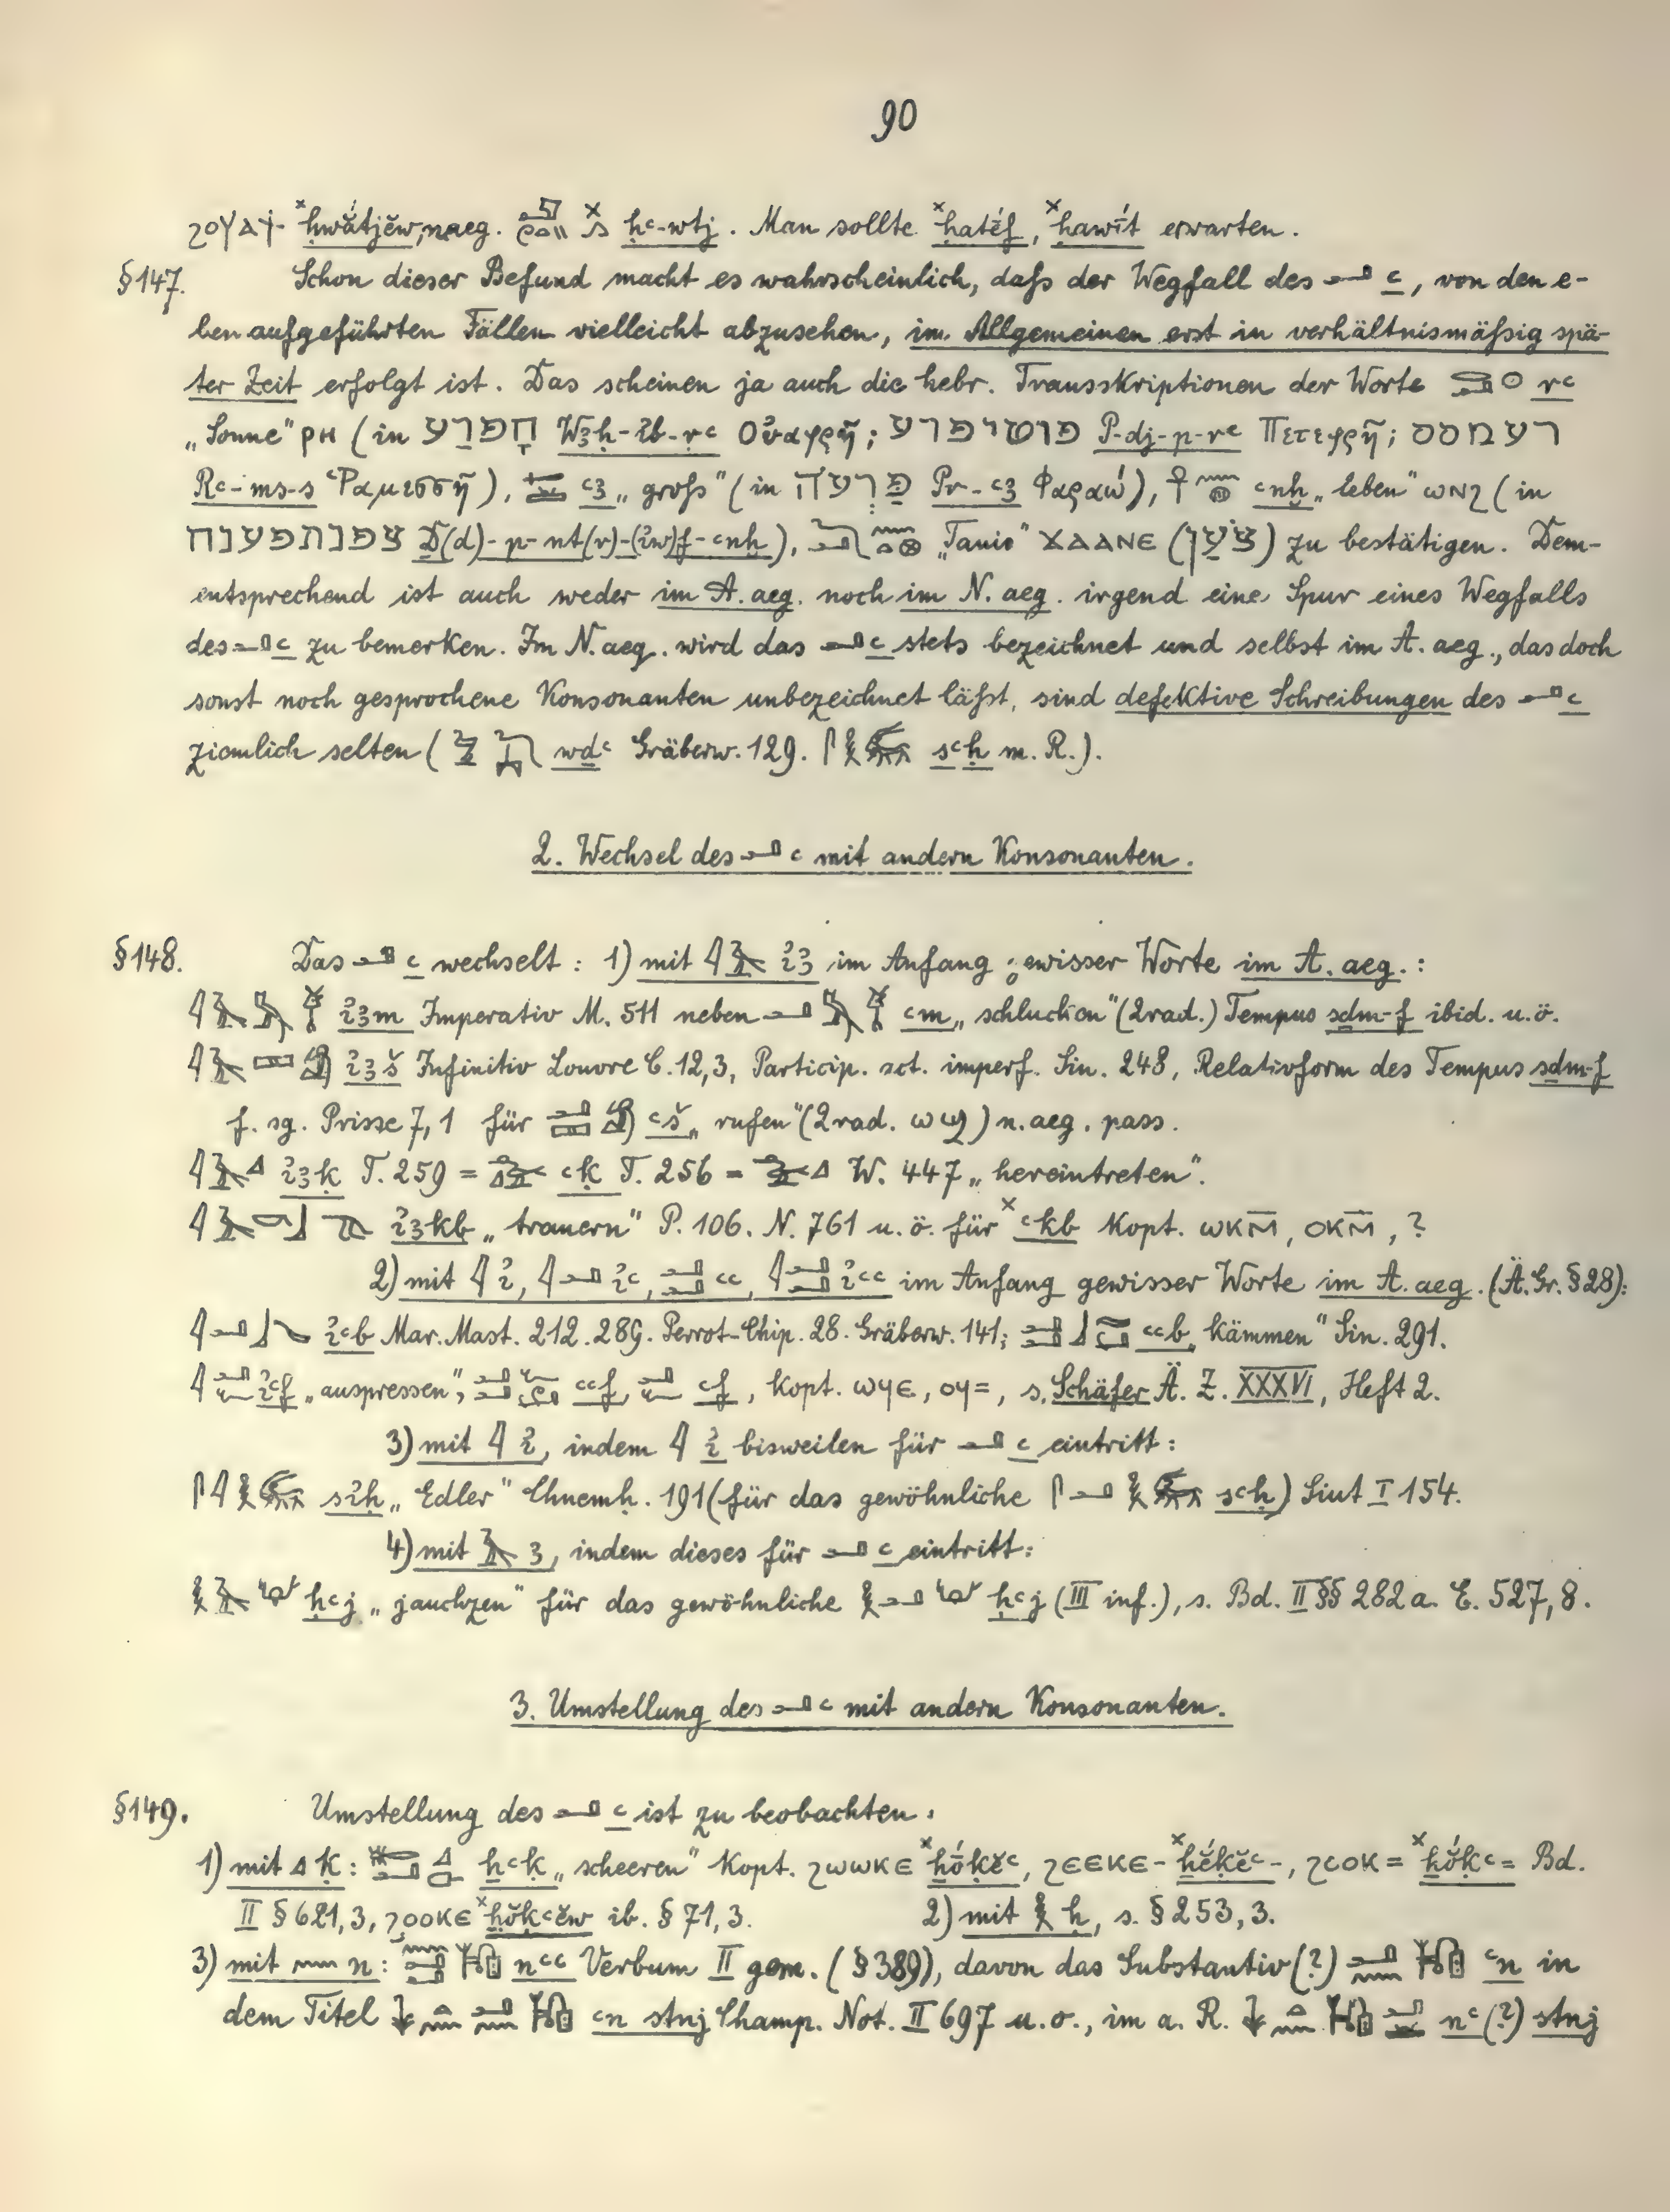 90
ϩⲟⲩⲁϯ- ˣḥwắtjĕw, n.aeg. ḥꜥ-wtj. Man sollte ˣḥatéf, ˣḥawít erwarten.
§147. Schon dieser Befund macht es wahrscheinlich, daſs der Wegfall des 𓂝 ꜥ, von den e-
ben aufgeführten Fällen vielleicht abzusehen, im Allgemeinen erst in verhältnismäſsig spä-
ter Zeit erfolgt ist. Das scheinen ja auch die hebr. Transskriptionen der Worte 𓂋𓂝𓇳 rꜥ
„Sonne" ⲣⲏ (in חָפְרַע Wꜣḥ-ἰb-rꜥ Οὐαφρῆ; פוטיפרע P-dj-p-rꜥ Πετεφρῆ; רעמסס
Rꜥ-ms-s Ῥαμεσσῆ), ꜥꜣ „groſs" (in פַּרְעֹה Pr-ꜥꜣ Φαραώ), 𓋹𓈖𓐍 ꜥnḫ „leben" ⲱⲛϩ (in
צפנתפענח D(d)-p-nt(r)-(ἰw)f-ꜥnḫ), „Tanis" ϫⲁⲁⲛⲉ (צֹעַן) zu bestätigen. Dem-
entsprechend ist auch weder im A. aeg. noch im N. aeg. irgend eine Spur eines Wegfalls
des 𓂝 ꜥ zu bemerken. Im N. aeg. wird das 𓂝 ꜥ stets bezeichnet und selbst im A. aeg., das doch
sonst noch gesprochene Konsonanten unbezeichnet läſst, sind defektive Schreibungen des 𓂝 ꜥ
ziemlich selten ( wdꜥ Gräberw. 129. sꜥḥ m. R.).
2. Wechsel des 𓂝 ꜥ mit andern Konsonanten.
§148. Das 𓂝 ꜥ wechselt: 1) mit 𓇋𓄿 ἰꜣ im Anfang gewisser Worte im A. aeg.:
𓇋𓄿𓅓 ἰꜣm Imperativ M. 511 neben 𓂝𓅓 ꜥm „schlucken" (2rad.) Tempus sdm-f ibid. u. ö.
𓇋𓄿𓈙𓀁 ἰꜣš Infinitiv Louvre C. 12,3, Particip. act. imperf. Sin. 248, Relativform des Tempus sdm-f
f. sg. Prisse 7,1 für 𓂝𓈙𓀁 ꜥš „rufen" (2rad. ⲱϣ) n. aeg. pass.
𓇋𓄿𓈎 ἰꜣḳ T. 259 = ꜥḳ T. 256 = W. 447 „hereintreten".
𓇋𓄿𓎡𓃀 ἰꜣkb „trauern" P. 106. N. 761 u. ö. für ˣꜥkb Kopt. ⲱⲕⲙ̄, ⲟⲕⲙ̄, ?
2) mit 𓇋 ἰ, 𓇋𓂝 ἰꜥ, 𓂝𓂝 ꜥꜥ, 𓇋𓂝𓂝 ἰꜥꜥ im Anfang gewisser Worte im A. aeg. (Ä. Gr. §28):
𓇋𓂝𓃀 ἰꜥb Mar. Mast. 212. 289. Perrot-Chip. 28. Gräberw. 141; 𓂝𓂝𓃀 ꜥꜥb „kämmen" Sin. 291.
𓇋𓂝𓆑 ἰꜥf „auspressen", 𓂝𓂝𓆑 ꜥꜥf, 𓂝𓆑 ꜥf, Kopt. ⲱϥⲉ, ⲟϥ=, s. Schäfer Ä. Z. XXXVI, Heft 2.
3) mit 𓇋 ἰ, indem 𓇋 ἰ bisweilen für 𓂝 ꜥ eintritt:
𓋴𓇋𓎛 sἰḥ „Edler" Chnemḥ. 191 (für das gewöhnliche 𓋴𓂝𓎛 sꜥḥ) Siut I 154.
4) mit 𓄿 ꜣ, indem dieses für 𓂝 ꜥ eintritt:
𓎛𓄿 ḥꜥj „jauchzen" für das gewöhnliche 𓎛𓂝 ḥꜥj (III inf.), s. Bd. II §§ 282a. E. 527,8.
3. Umstellung des 𓂝 ꜥ mit andern Konsonanten.
§149. Umstellung des 𓂝 ꜥ ist zu beobachten.
1) mit 𓈎 ḳ: ḫꜥḳ „scheeren" Kopt. ϩⲱⲱⲕⲉ ˣḫóḳĕꜥ, ϩⲉⲉⲕⲉ- ˣḫéḳĕꜥ-, ϩⲟⲟⲕ= ˣḫóḳꜥ= Bd.
II § 621,3, ϩⲟⲟⲕⲉ ˣḫŏḳꜥĕw ib. § 71,3. 2) mit 𓎛 ḥ, s. § 253,3.
3) mit 𓈖 n: nꜥꜥ Verbum II gem. (§ 389), davon das Substantiv (?) ꜥn in
dem Titel ꜥn stnj Champ. Not. II 697 u. o., im a. R. nꜥ (?) stnj